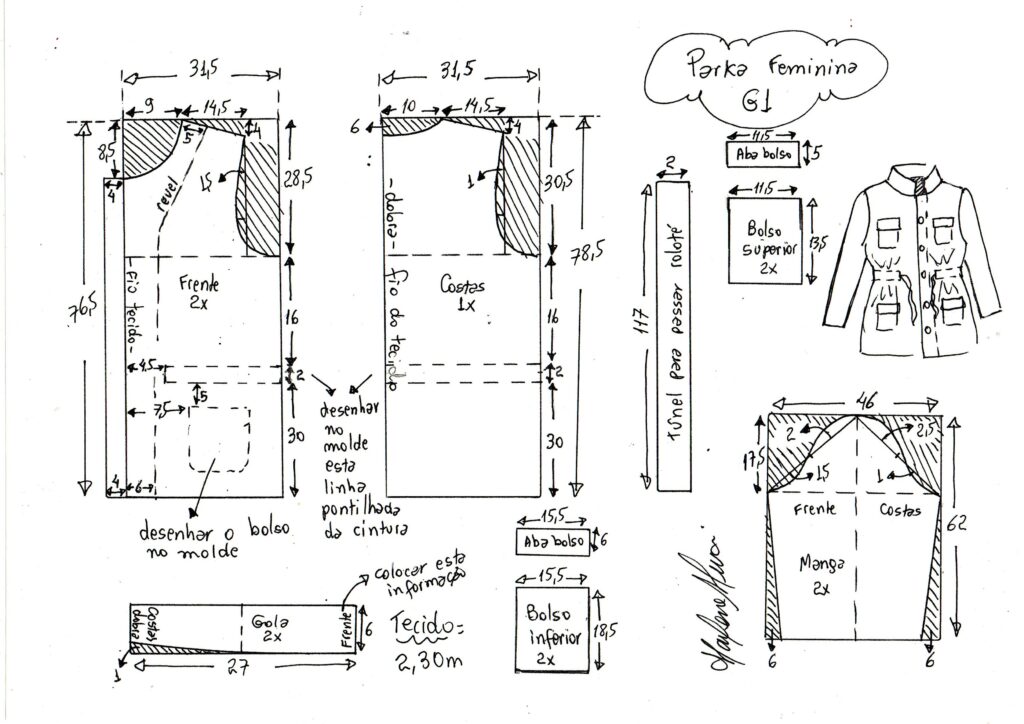 Parka Feminina
G1
31,5
9
14,5
5
4
8,5
4
revel
1,5
28,5
76,5
-fio tecido-
Frente
2x
16
4,5
2
5
7,5
30
4
6
desenhar o bolso
no molde
desenhar
no
molde
esta
linha
pontilhada
da cintura
31,5
10
14,5
6
4
1
30,5
78,5
-dobra-
fio do tecido
Costas
1x
16
2
30
2
117
Túnel para passar roloté
11,5
Aba bolso
5
11,5
Bolso
superior
2x
13,5
46
2
2,5
17,5
1,5
1
Frente
Costas
62
Manga
2x
6
6
15,5
Aba bolso
6
15,5
Bolso
inferior
2x
18,5
colocar esta
informação
Costas
dobra
Gola
2x
Frente
6
1
27
Tecido=
2,30m